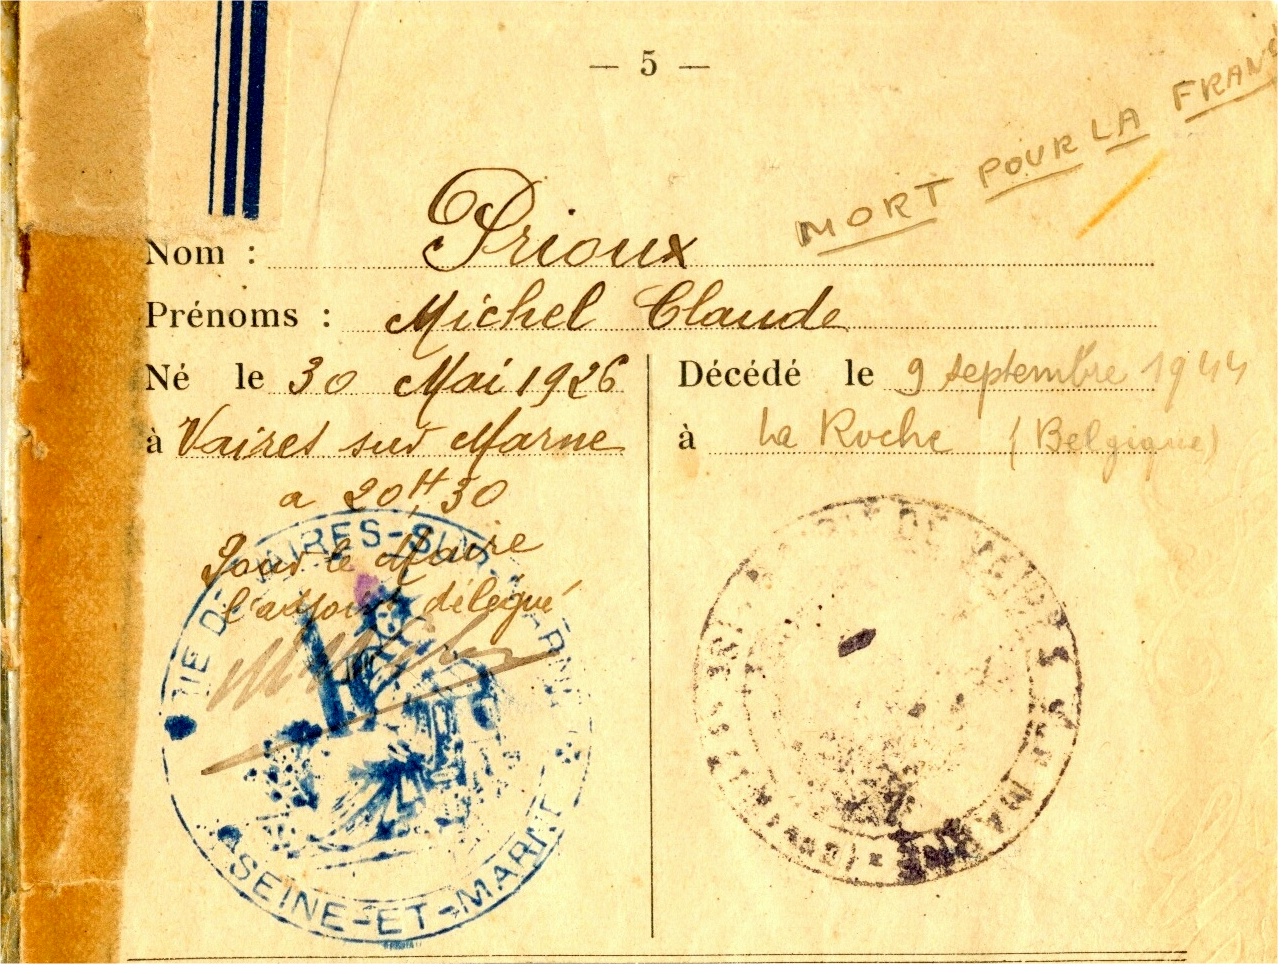 — 5 —
MORT POUR LA FRANC
Nom : Prioux
Prénoms : Michel Claude
Né le 30 Mai 1926
à Vaires sur Marne
a 20H,30
Pour le Maire
l'adjoint délégué
Décédé le 9 septembre 1944
à La Roche (Belgique)
VAIRES-SUR-MARNE
SEINE-ET-MARNE